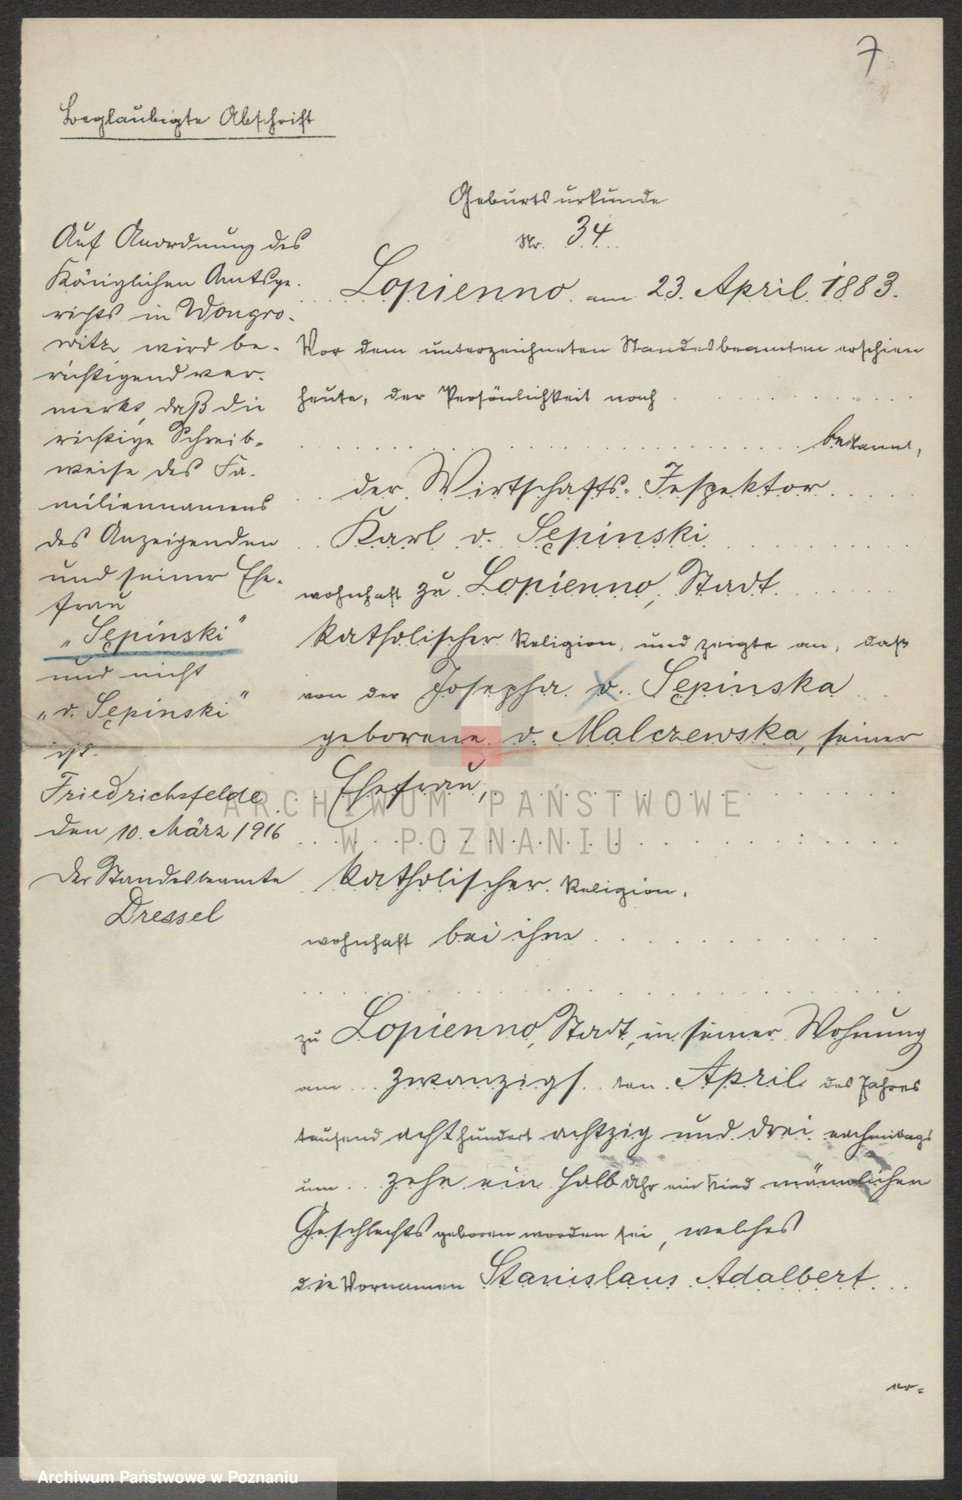 7
Beglaubigte Abschrift
Geburtsurkunde
Nr. 34
Auf Anordnung des
Königlichen Amtsge-
richts in Wongro-
witz wird be-
richtigend ver-
merkt, daß die
richtige Schreib-
weise des Fa-
miliennamens
des Anzeigenden
und seiner Ehe-
frau
„Sępinski"
und nicht
„v. Sępinski"
ist.
Friedrichsfelde
den 10. März 1916
Der Standesbeamte
Dressel
Lopienno am 23. April 1883.
Vor dem unterzeichneten Standesbeamten erschien
heute, der Persönlichkeit nach
bekannt,
der Wirtschafts-Inspektor
Karl v. Sępinski
wohnhaft zu Lopienno, Stadt
katholischer Religion, und zeigte an, daß
von der Josepha v. Sępinska
geborene v. Malczewska, seiner
Ehefrau,
katholischer Religion,
wohnhaft bei ihm
zu Lopienno, Stadt, in seiner Wohnung
am zwanzigsten April des Jahres
tausend achthundert achtzig und drei nachmittags
um zehn ein halb Uhr ein Kind männlichen
Geschlechts geboren worden sei, welches
die Vornamen Stanislaus Adalbert
ARCHIWUM PAŃSTWOWE
W POZNANIU
Archiwum Państwowe w Poznaniu